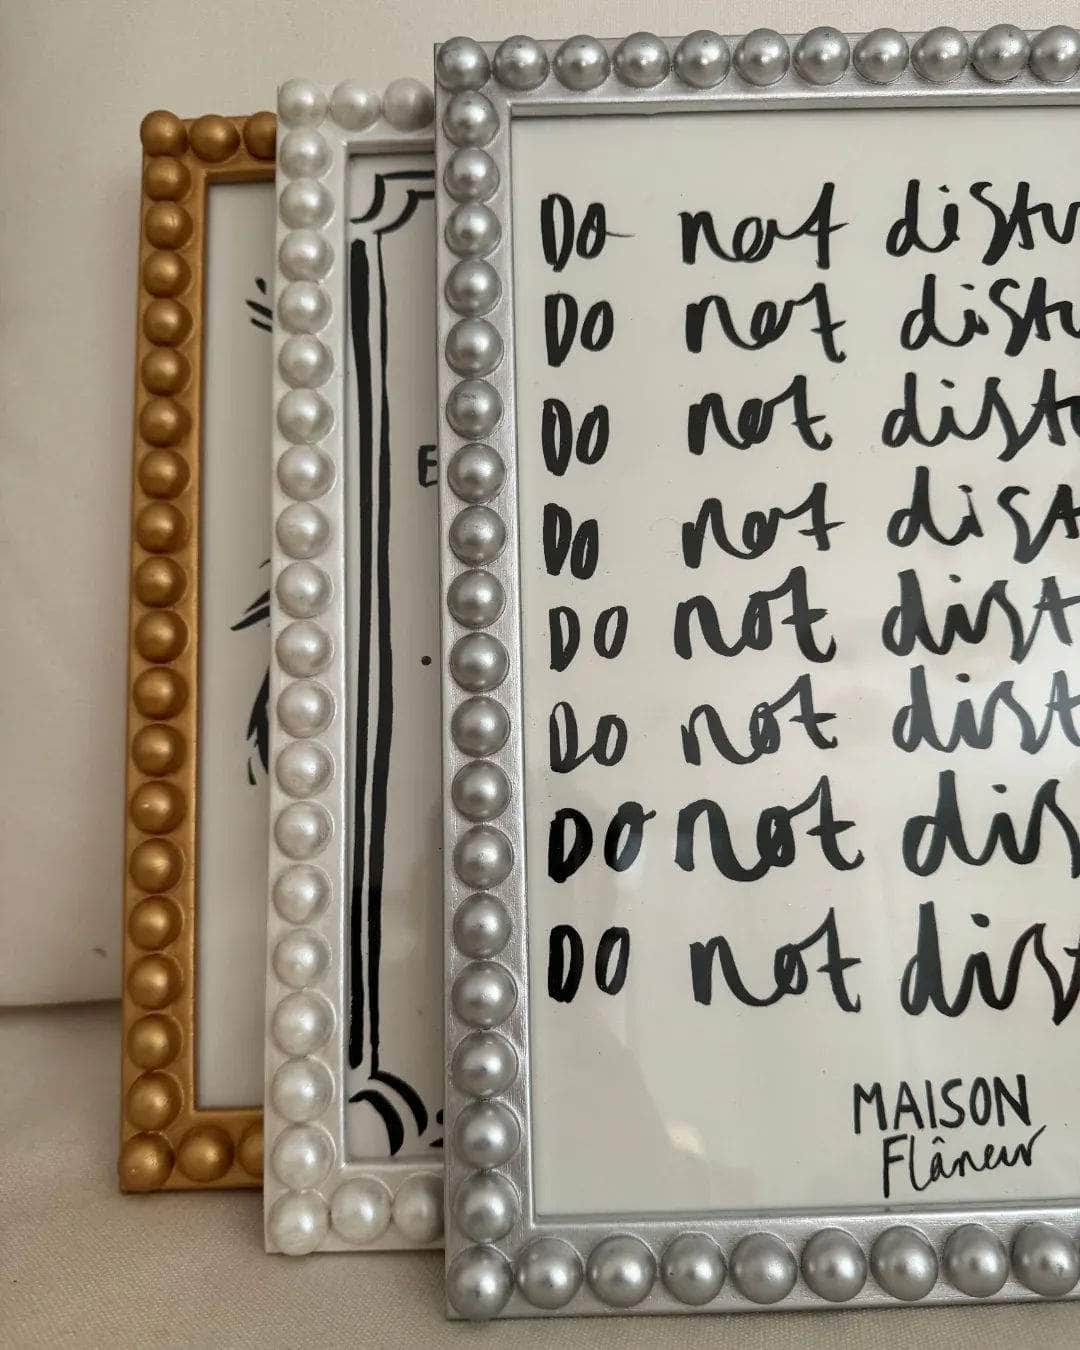 E
Do not distu
Do not distu
Do not distu
Do not dist
Do not dist
Do not dist
Do not dis
Do not dist
MAISON
Flâneur